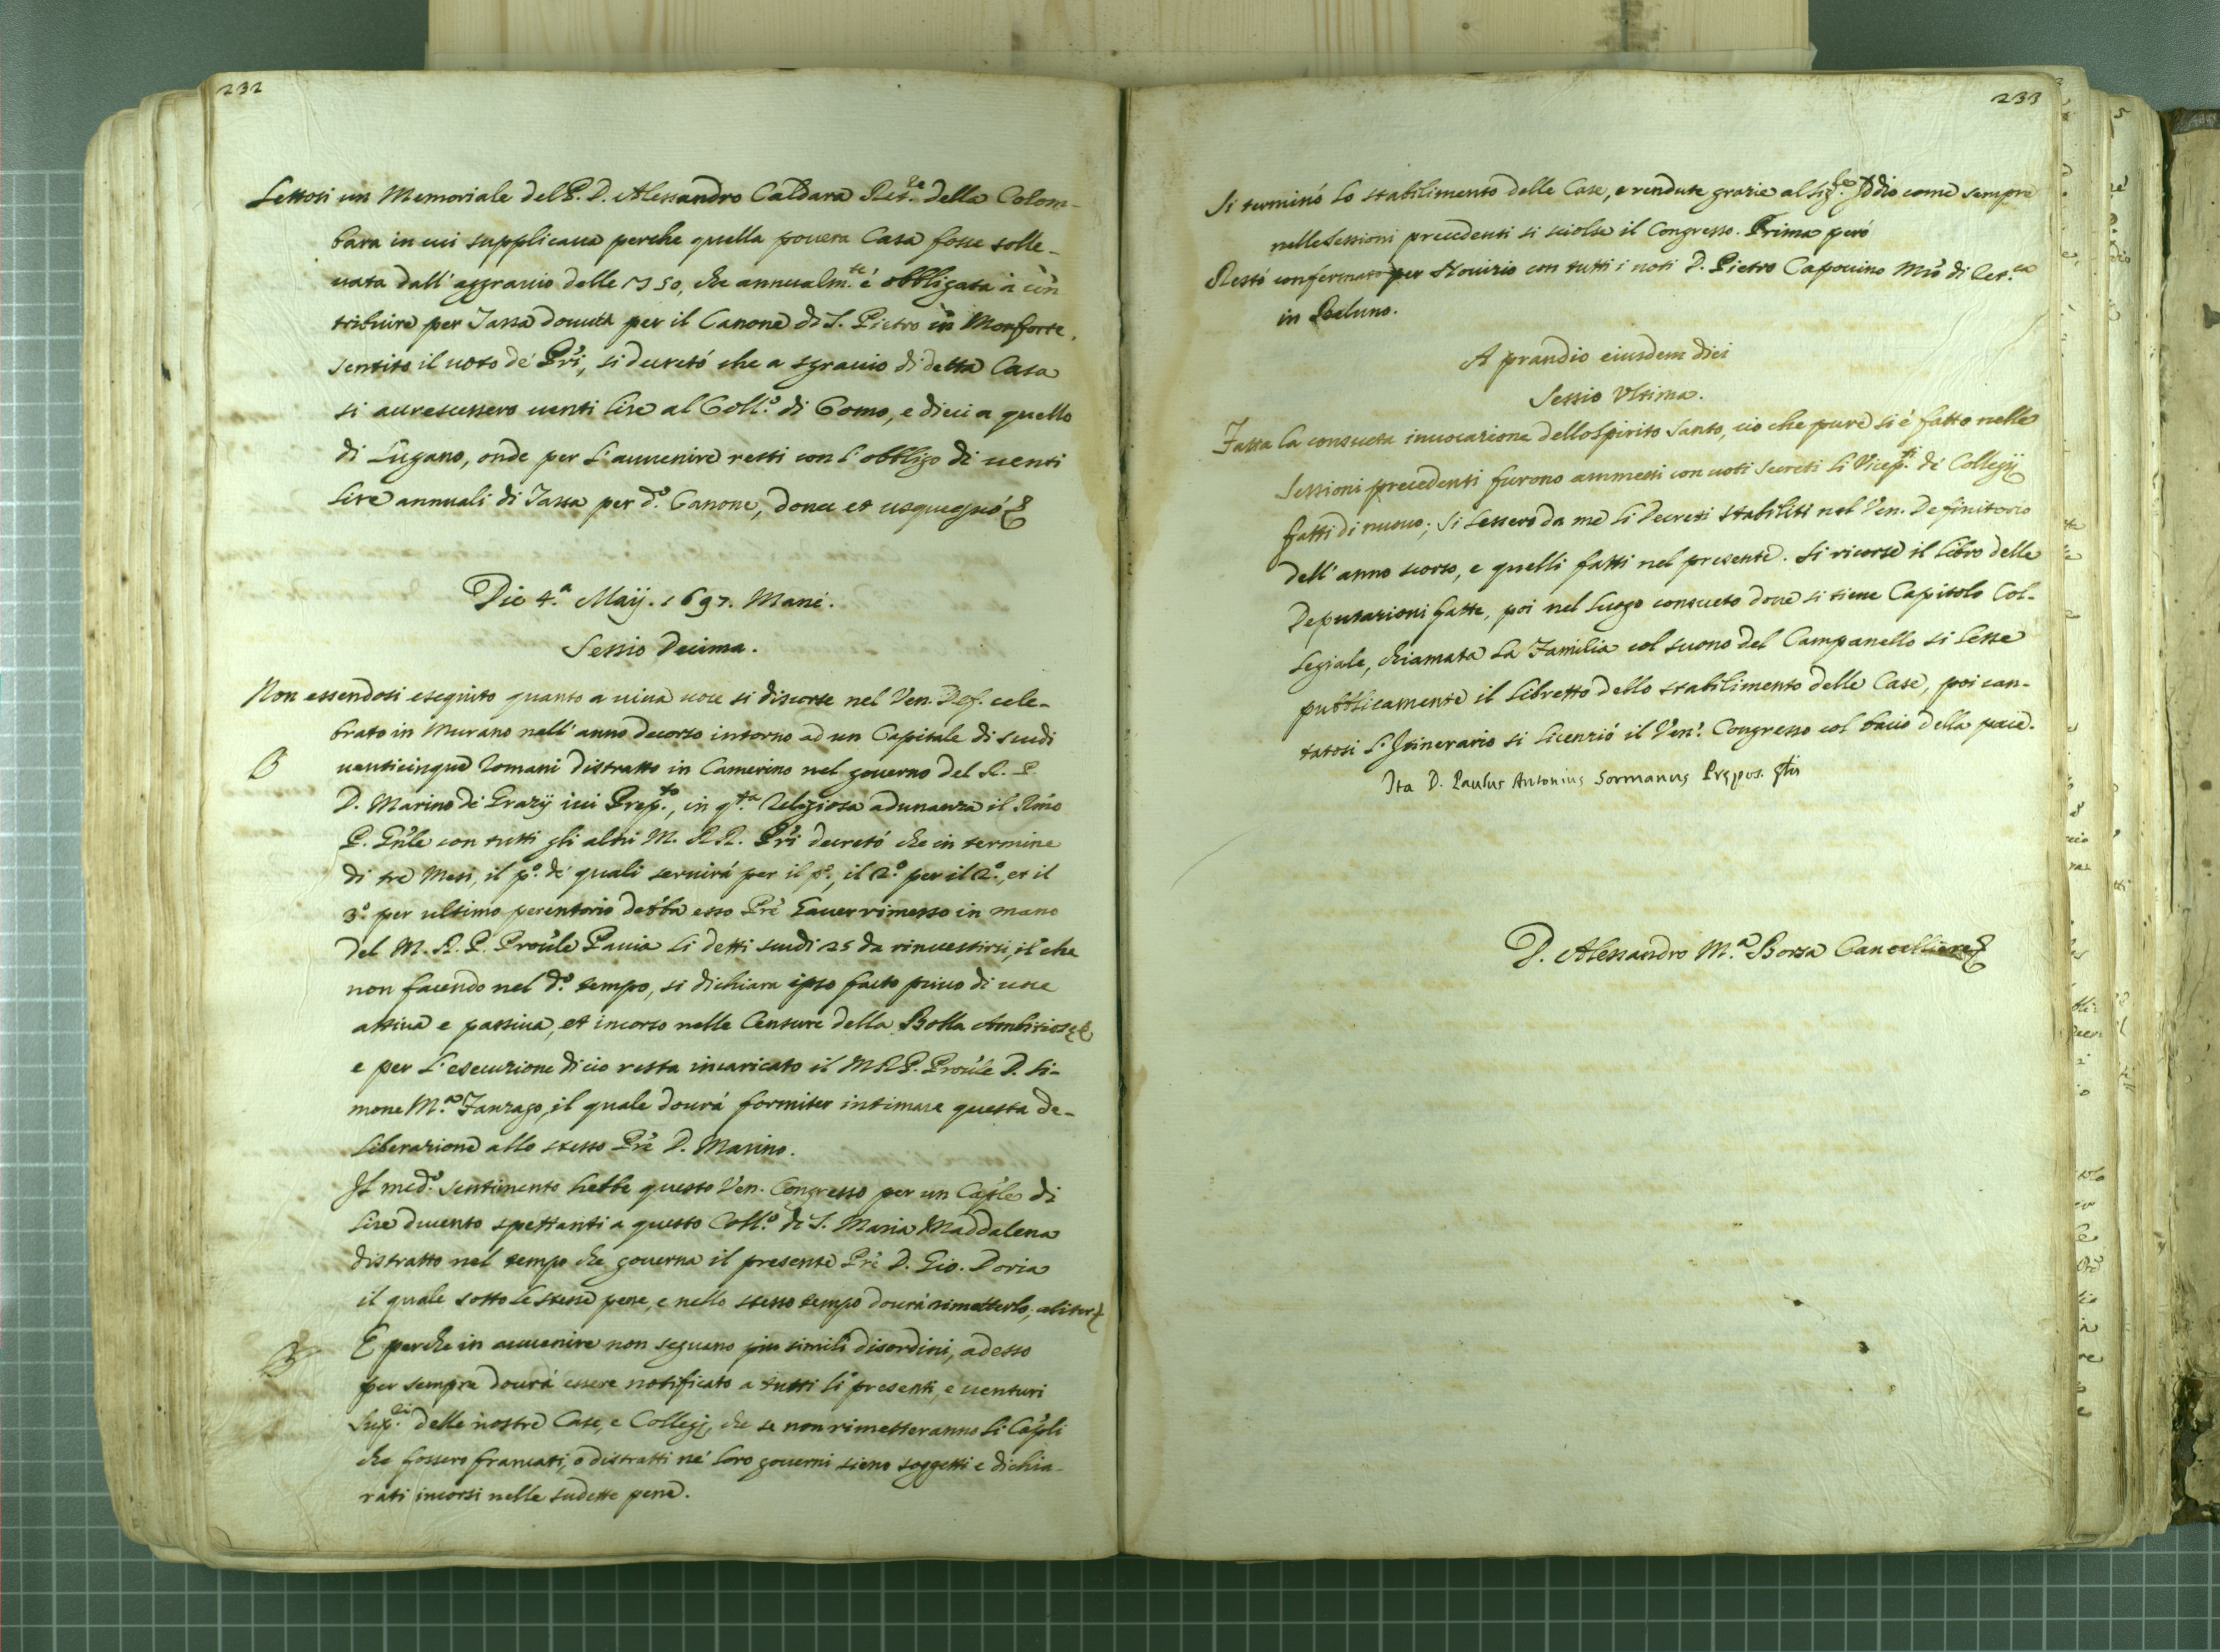 232
Lettosi un Memoriale del P. D. Alessandro Caldara Ret.re della Colom-
bara in cui supplicaua perche quella pouera Casa fosse solle-
uata dall' aggrauio delle 50, che annualm.te é obbligata à con
tribuire per Tassa douuta per il Canone di S. Pietro in Monforte.
Sentito il uoto de' Pri, si decretó che a sgrauio di detta Casa
si accrescessero uenti lire al Coll.o di Como, e dieci a quello
di Lugano, onde per l'auuenire resti con l'obbligo di uenti
lire annuali di Tassa per d.o Canone, donec et usquequó &
Die 4.a Maij. 1697. Mané.
Sessio Decima.
Non essendosi eseguito quanto a uiua uoce si discorse nel Ven. Def. cele-
brato in Murano nell' anno decorso intorno ad un Capitale di scudi
uenticinque Romani distratto in Camerino nel gouerno del R. P.
D. Marino de' Grazij iui Prep.to, in q.ta Religiosa adunanza il Rmo
P. Gnle con tutti gli altri M. RR. Pri decretó che in termine
di tre Mesi, il p.o de' quali seruirá per il p.o, il 2.o per il 2.o, et il
3.o per ultimo perentorio debba esso Pre hauer rimesso in mano
del M. R. P. Proule Pauia li detti scudi 25 da rinuestirsi, il che
non facendo nel d.o tempo, si dichiara ipso facto priuo di uoce
attiua e passiua, et incorso nelle Censure della Bolla Ambitiosę &
e per l'esecuzione di cio resta incaricato il M R P. Proule D. Si-
mone M.a Fanzago, il quale dourá formiter intimare questa de-
liberazione allo stesso Pre D. Marino.
Il med.o sentimento hebbe questo Ven. Congresso per un Caple di
lire ducento spettanti a questo Coll.o di S. Maria Maddalena
distratto nel tempo che gouerna il presente Pre D. Gio. Doria
il quale sotto le stesse pene, e nello stesso tempo dourá rimetterlo, aliter &
E perche in auuenire non seguano piu simili disordini, adesso
per sempre dourá essere notificato a tutti li presenti, e uenturi
Sup.ri delle nostre Case, e Collegij, che se non rimetteranno li Capli
che fossero francati, o distratti ne' loro gouerni sieno soggetti e dichia-
rati incorsi nelle sudette pene.
233
Si terminó lo stabilimento delle Case, e rendute grazie al Sig.re Iddio come sempre
nelle Sessioni precedenti si sciolse il Congresso. Prima peró
Restó confermato per Nouizio con tutti i uoti D. Pietro Capouino Mro di Ret.ca
in Beluno.
A prandio eiusdem diei
Sessio Vltima.
Fatta la consueta inuocazione dello Spirito Santo, cio che pure si é fatto nelle
Sessioni precedenti furono ammessi con uoti secreti li Vicep.ti de' Collegij
fatti di nuouo; Si lessero da me li Decreti stabiliti nel Ven. Definitorio
dell' anno scorso, e quelli fatti nel presente. Si ricorse il libro delle
Deputazioni fatte, poi nel luogo consueto doue si tiene Capitolo Col-
legiale, chiamata la Familia col suono del Campanello si lesse
pubblicamente il libretto dello stabilimento delle Case, poi can-
tatosi l'Itinerario si licenzió il Ven. Congresso col bacio della pace.
Ita D. Paulus Antonius Sormanus Prępos. Gńlis
D. Alessandro M.a Borsa Cancelliere